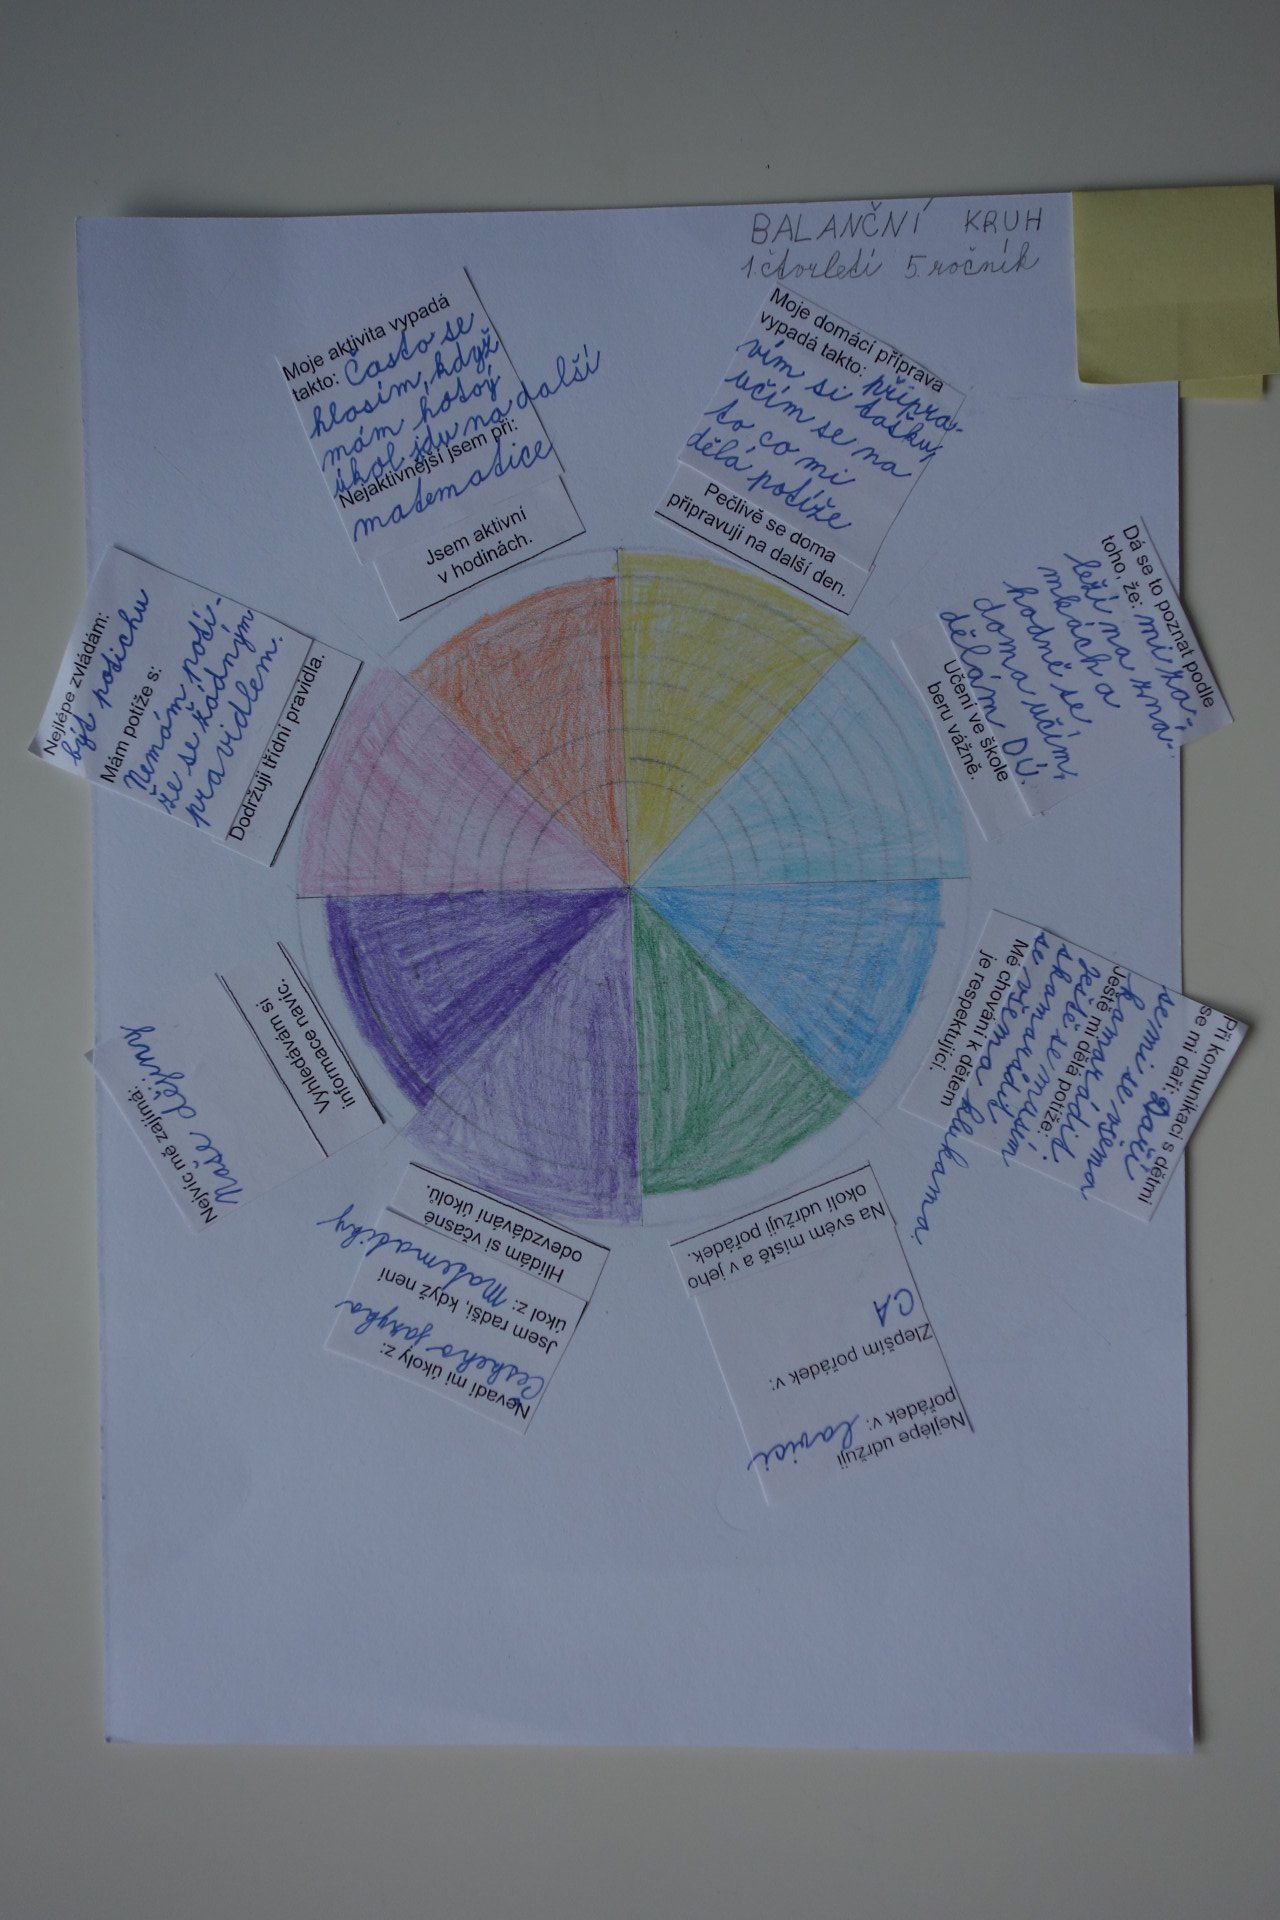 BALANČNÍ KRUH
1. čtvrletí 5. ročník
Moje domácí příprava
vypadá takto: přípra-
vím si tašku,
učím se na
to co mi
dělá potíže
Pečlivě se doma
připravuji na další den.
Dá se to poznat podle
toho, že: mi zá-
leží na zná-
mkách a
hodně se
doma učím,
dělám DÚ.
Učení ve škole
beru vážně.
Při komunikaci s dětmi
se mi daří:
se mi daří
kamarádit
se všema
Ještě mi dělá potíže:
ještě se musím
skamarádit
se všema klukama.
Mé chování k dětem
je respektující.
Na svém místě a v jeho
okolí udržuji pořádek.
CA
Zlepším pořádek v:
Nejlépe udržuji
pořádek v: lavici
Hlídám si včasné
odevzdávání úkolů.
Jsem radši, když není
úkol z: Matematiky
Nevadí mi úkoly z:
Českeho jazyka
Vyhledávám si
informace navíc.
Nejvíc mě zajímá:
Naše dějiny
Nejlépe zvládám:
být potichu
Mám potíže s:
Nemám potí-
že se žádným
pravidlem.
Dodržuji třídní pravidla.
Moje aktivita vypadá
takto: Často se
hlásím, když
mám hotový
úkol jdu na další
Nejaktivnější jsem při:
matematice
Jsem aktivní
v hodinách.